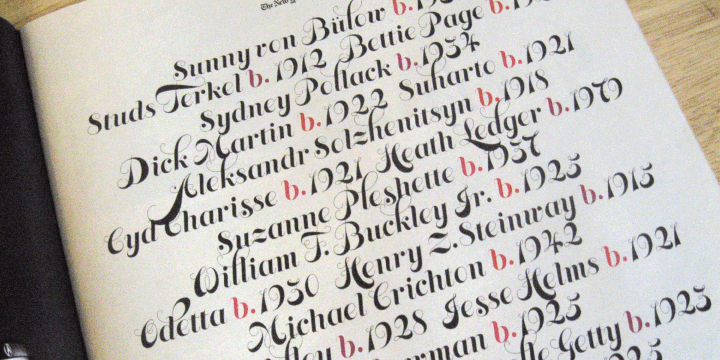 The New
Sunny von Bülow b.
Studs Terkel b. 1912 Bettie Page b.
Sydney Pollack b.1934
Dick Martin b.1922 Suharto b.1921
Aleksandr Solzhenitsyn b.1918
Cyd Charisse b.1921 Heath Ledger b.1979
Suzanne Pleshette b.1937
William F. Buckley Jr. b.1925
Odetta b.1930 Henry Z.Steinway b.1915
Michael Crichton b.1942
b.1928 Jesse Helms b.1921
b.1925
Getty b.1923